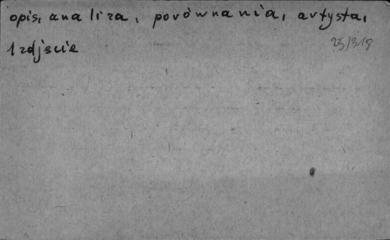 opis, analiza, porównania, artysta,
1 zdjęcie
25/319